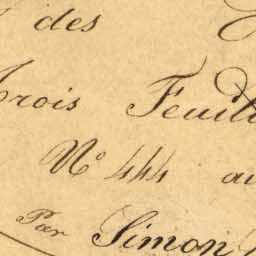 des
trois Feuill
N° 444 au
Par Simon